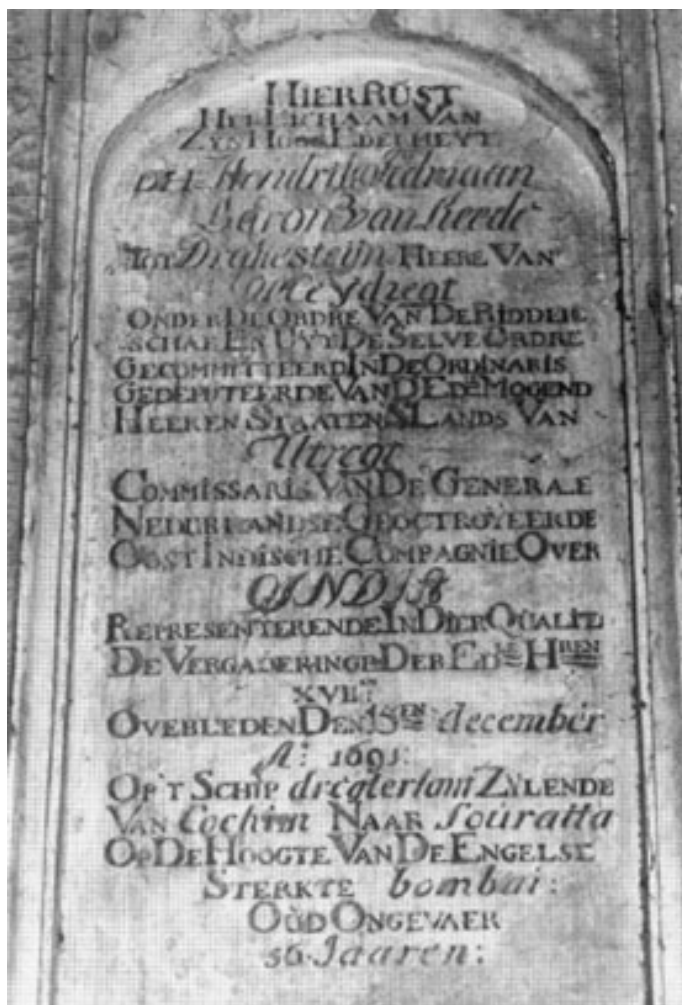 HIER RÚST
HET LICHAAM VAN
ZYN HOOG EDELHEYT
Hendrik Adriaan
Baron van Reede
TOT Drakesteÿn HEERE VAN
ONDER DE ORDRE VAN DE RIDDER
SCHAP EN UYT DE SELVE ORDRE
GECOMMITTEERD IN DE ORDINARIS
GEDEPUTEERDE VAN D ED MOGEND
HEEREN STAATEN SLANDS VAN
Utregt
COMMISSARIS VAN DE GENERALE
NEDERLANDSE GEOCTROYEERDE
OOST INDISCHE COMPAGNIE OVER
INDIA
REPRESENTERENDE IN DIER QÚALIT:
DE VERGADERING DER ED:LE HREN
XVII
OVERLEDEN DEN 15EN december
A:o 1691:
OP'T SCHIP ZYLENDE
VAN Cochim NAAR Souratta
OP DE HOOGTE VAN DE ENGELSE
STERKTE bombai:
OÚD ONGEVAER
56 Jaaren: